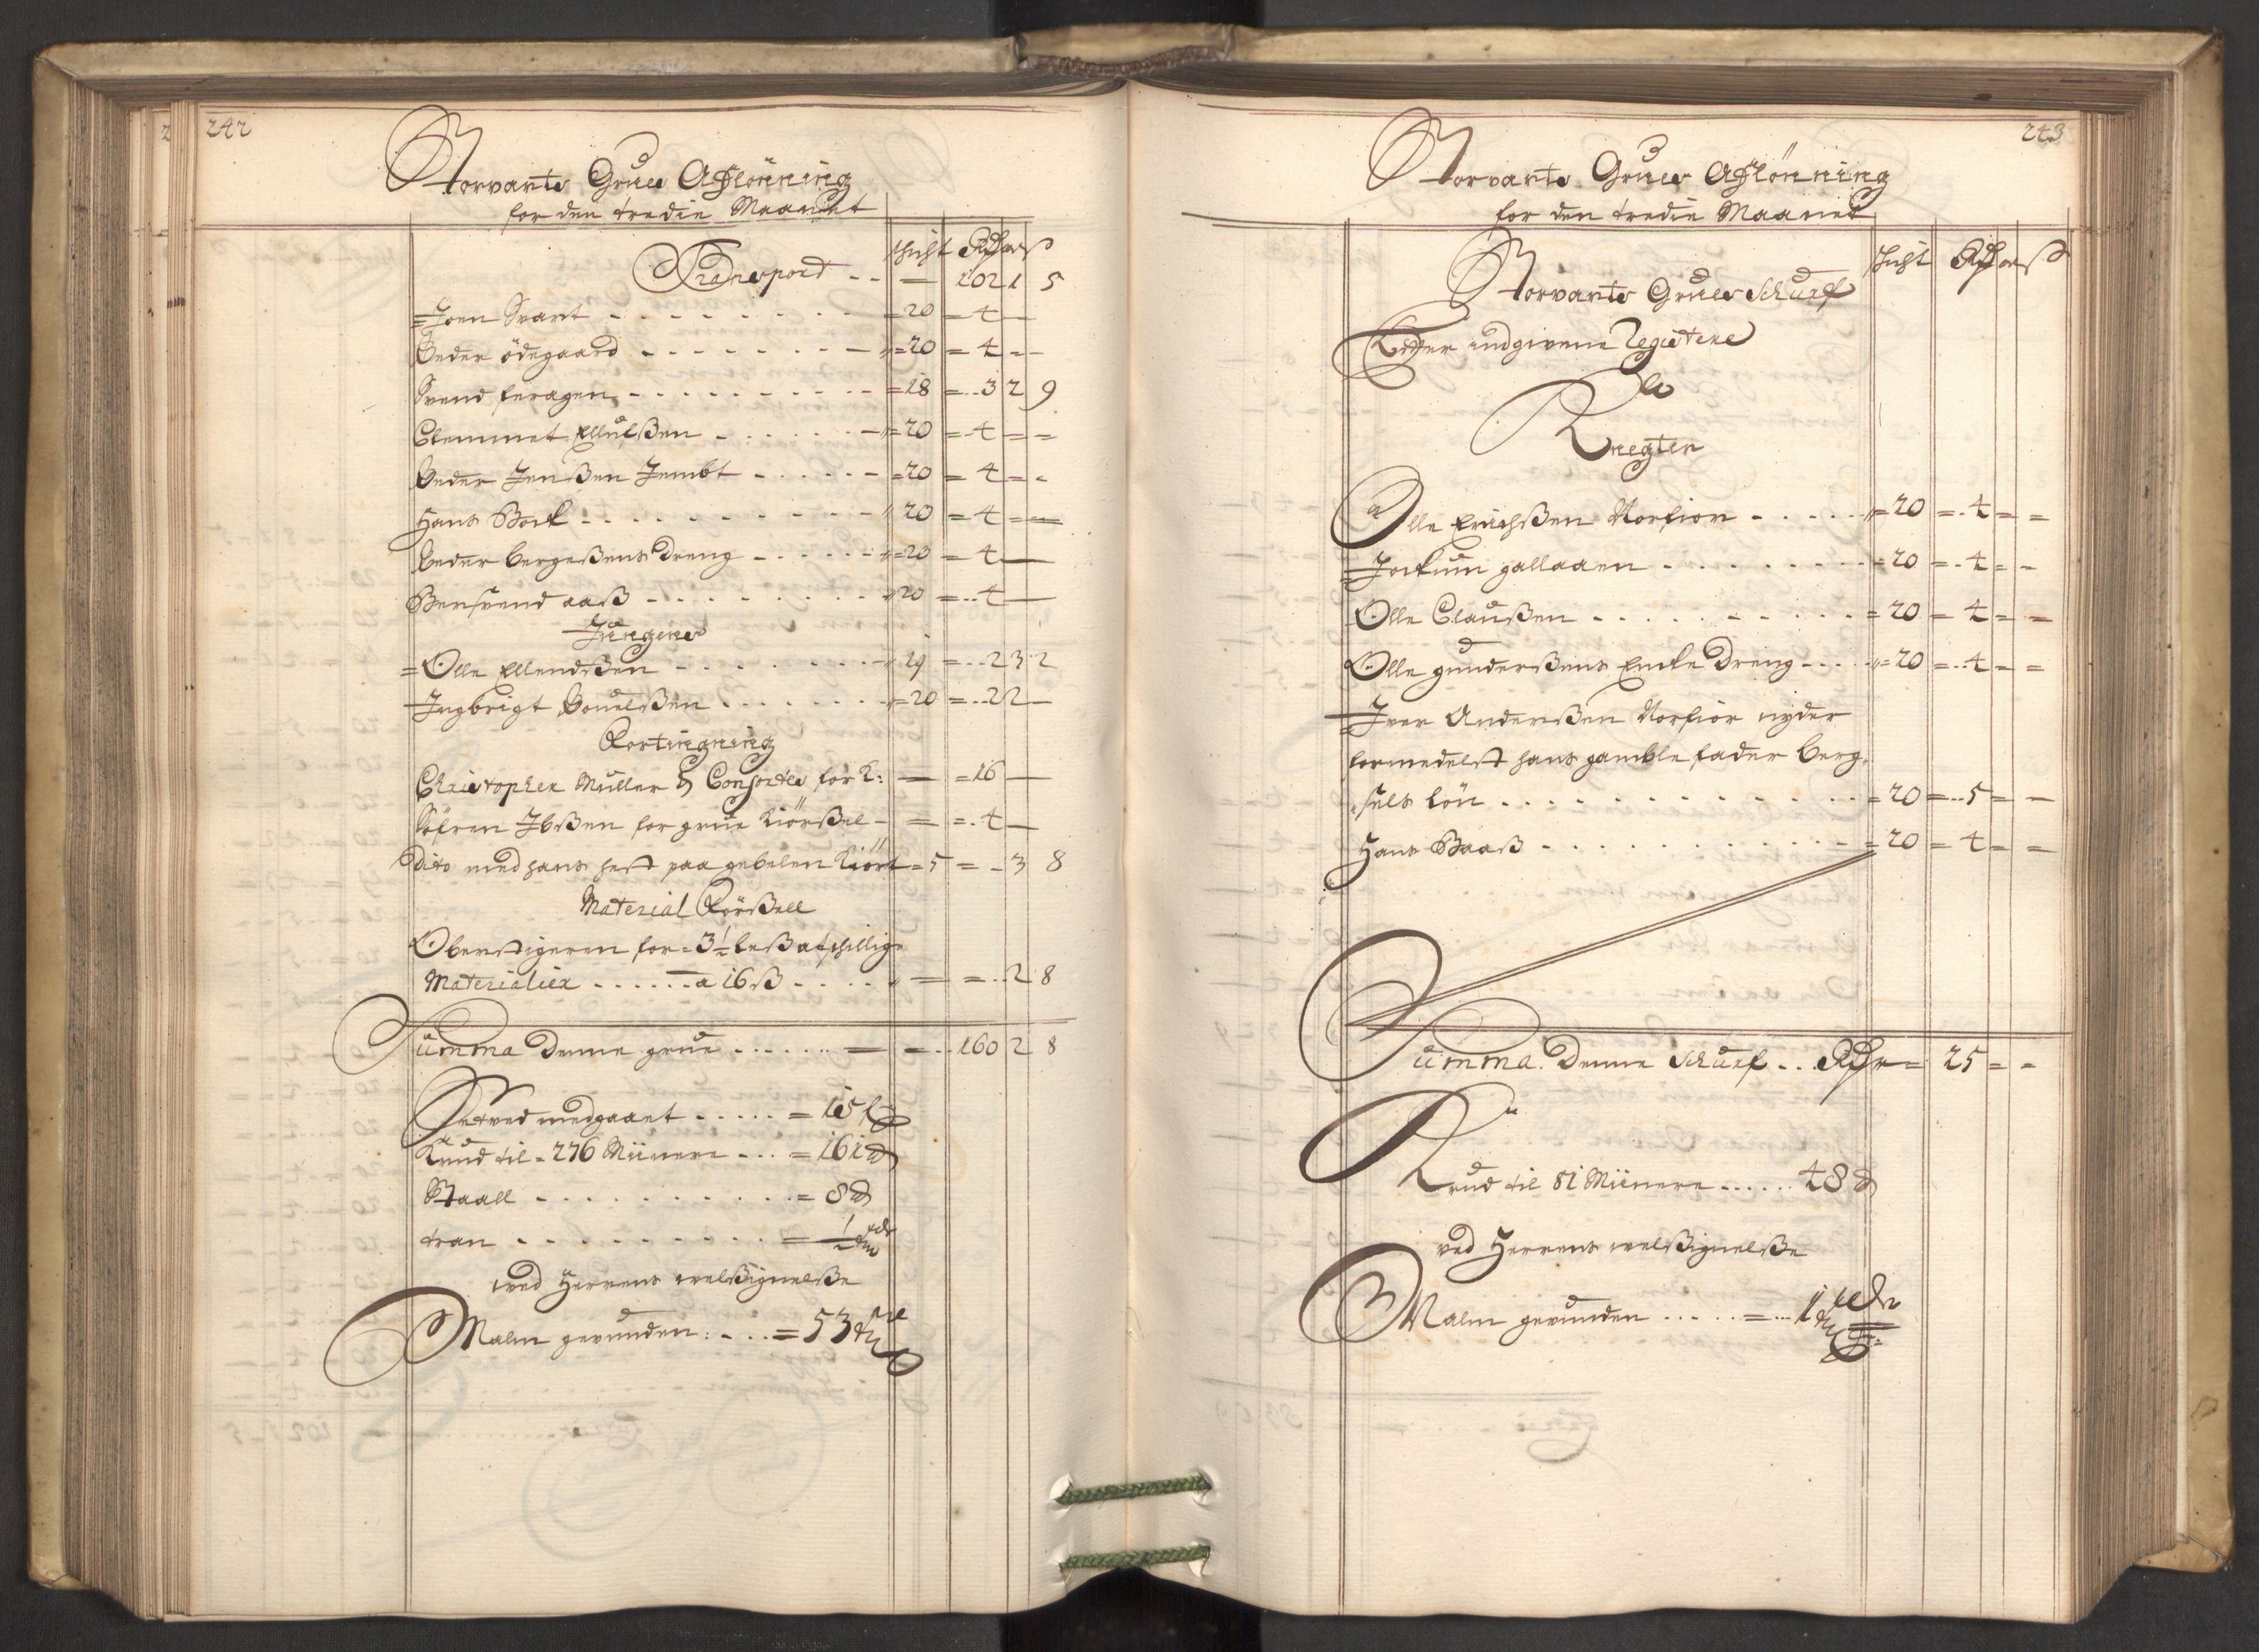 242
Storvarts Grues Aflönning
for den tredie Maanet
schicht Rdr ort ß
Transport - - — 102 1 5
Joen Svart - - - = 20 = 4 —
Peder ödegaard - - - = 20 = 4 - -
Svend feragen - - - = 18 = 3 2 9
Clemmet Ellufßen - - - = 20 = 4 = =
Peder Jenßen Jembt - - - = 20 = 4 = -
Hans Bock - - - 20 = 4 = =
Peder bergeßens Dreng - - - = 20 = 4 —
Bersvend aaß - - - 20 = 4 —
Jungens
Olle Ellendßen - - - 19 = 2 3 2
Ingbrigt Pouelßen - - - = 20 = 2 2 —
Fortingning
Christopher Müller & Consortes for K: — = 16 —
Söfren Ibßen for grue Kiörßel - — = 4 —
Dito med hans hest paa gebelen Kiört = 5 = - 3 8
Material Förßell
Oberstigeren for = 3 1/2 leß atschillige
Materialier - - - a 16 ß - - - — = 2 8
Summa Denne grue - - - — = 160 2 8
Setved medgaaet - - - = 15 f
Krud til = 276 Miinere - - - = 161 ℔
Staall - - - = 8 ℔
tran - - - = 1/2 tde
ved Herrens velßignelße
Malm gevunden: - - - = 53 tdr
243
Storvarts Grues Aflönning
for den tredie Maanet
schicht Rdr ort ß
Storvarts Grues Schurf
Efter indgivene Registere
Als
Knegter
Olle Erichßen Norfior - - - = 20 = 4 = =
Jockum gallaaen - - - = 20 = 4 = -
Olle Claußen - - - = 20 = 4 = =
Olle gunderßens Encke Dreng - - - = 20 = 4 = =
Iver Anderßen Norfior nyder
formedelst hans gamble fader berg,
, sels lön - - - = 20 = 5 = —
Hans Baaß - - - = 20 = 4 = =
Summa Denne Schurf - - Rdr = 25 = -
Krud til 81 Miinere - - - 48 ℔
ved Herrens velßignelße
Malm gevunden - - - = 1 tdr